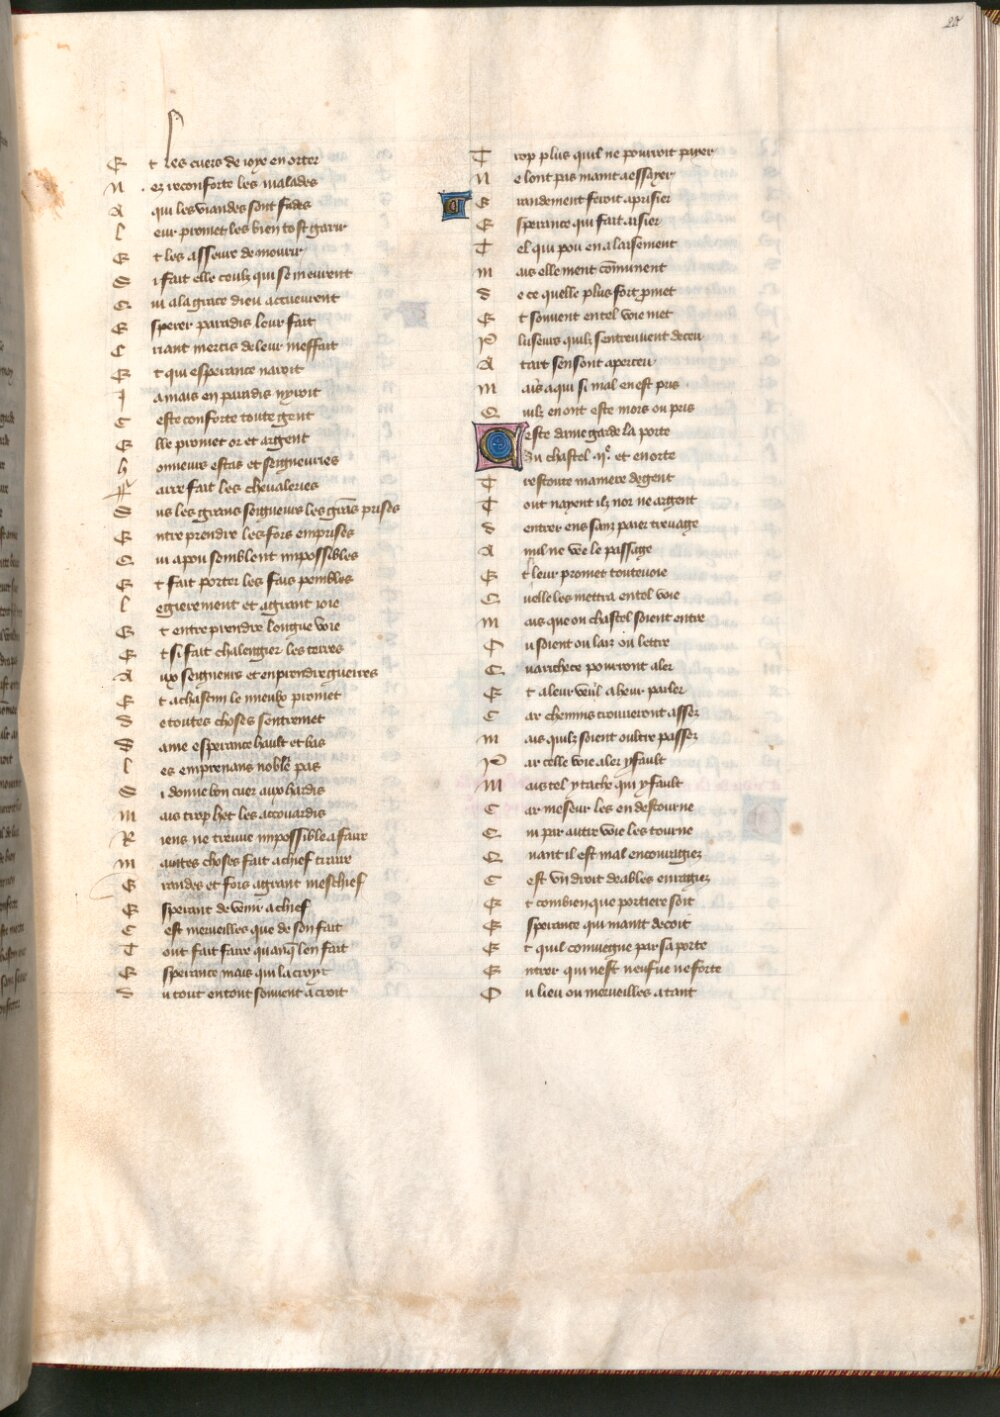 28
Et les cuers de ioye en orter
Nez reconforte les malades
A qui les viandes sont fades
Leur promet les bien tost garir
Et les asseure de mourir
Si fait elle ceulx qui se meurent
Qui a la grace dieu acqueurent
Esperer paradis leur fait
Criant mercis de leur meffait
Et qui esperance naroit
Iamais en paradis nyroit
Ceste conforte toute gent
Elle promet or et argent
honneurs estas et seigneuries
Faire fait les cheualeries
Dus les grans seigneurs les grãs prises
Entreprendre les fors emprises
Qui a pou semblent impossibles
Et fait porter les fais penibles
Legierement et a grant ioie
Et entreprendre longue voie
Et si fait chalengier les terres
Aux seigneurs et emprendre guerres
Et a chascun le mieulx promet
De toutes choses sentremet
Dame esperance hault et bas
Les emprenans noble pas
Si donne bon cuer aux hardis
Mais trop het les acouardis
Riens ne treuue impossible a faire
Maintes choses fait a chief traire
Grandes et fors a grant meschief
Esperant de venir a chief
Cest merueilles que de son fait
Tout fait faire quanq̃ len fait
Esperance mais qui la croyt
Du tout en tout souuent acroit
Trop plus quil ne pourroit paier
Ne lont pas maint a essayer
Grandement feroit a prisier
Esperance qui fait aisier
Tel qui pou en a laisement
Mais elle ment cõmunent
De ce quelle plus fort p̃met
Et souuent en tel voie met
Pluseurs quilz sentreuuent deceu
A tart sen sont aperceu
Mais a qui si mal en est pris
Quilz en ont este mors ou pris
Ceste dame garde la porte
Du chastel et en orte
Trestoute maniere de gent
Tout nayent ilz nor ne argent
Dentrer ens sanz paier treuage
A nul ne vee le passage
Et leur promet touteuoie
Quelle les mettra en tel voie
Mais que ou chastel soient entre
Ou soient ou laiz ou lettre
Qua richece pourront aler
Et a leur vueil a lieur parler
Car chemins trouueront assez
Mais quilz soient oultre passez
Par celle voie aler y fault
Mais tel y tache qui y fault
Car meseur les en destourne
Qui par autre voie les tourne
Quant il est mal encouragiez
Cest vn droit deables enragiez
Et combien que portiere soit
Esperance qui maint decoit
Et quil conuiegne par sa porte
Entrer qui nest neufue ne forte
Ou lieu ou merueilles a tant